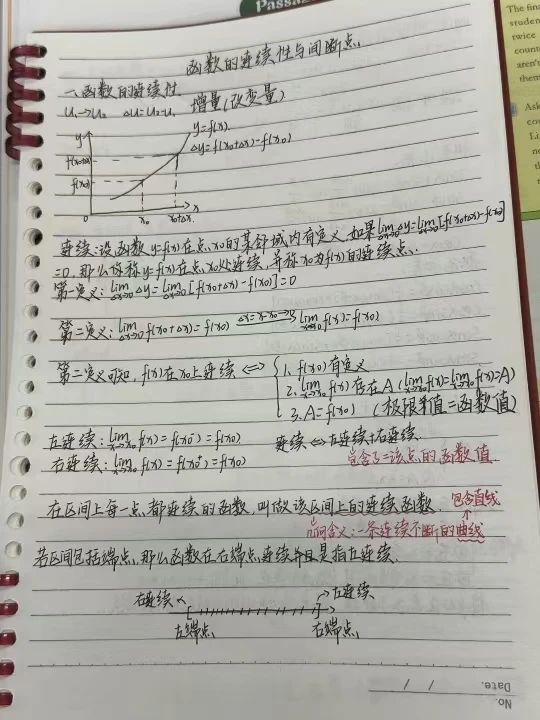 Passa
The fina
studen
twice
count
aren't
them
Ask
函数的连续性与间断点
一.函数的连续性
u₁→u₂ Δu=u₂-u₁ 增量(改变量)
y=f(x)
Δy=f(x₀+Δx)-f(x₀)
y
f(x₀+Δx)
f(x₀)
0 x₀ x₀+Δx x
连续:设函数y=f(x)在点x₀的某邻域内有定义.如果lim Δx→0 Δy=lim Δx→0 [f(x₀+Δx)-f(x₀)]
=0,那么你称y=f(x)在点x₀处连续,并称x₀为f(x)的连续点.
第一定义:lim Δx→0 Δy=lim Δx→0 [f(x₀+Δx)-f(x₀)]=0
第二定义:lim Δx→0 f(x₀+Δx)=f(x₀) Δx=x-x₀ lim x→x₀ f(x)=f(x₀)
第二定义可知,f(x)在x₀上连续⟺
1. f(x₀)有定义
2. lim x→x₀ f(x)存在A(lim f(x)=lim f(x)=A)
3. A=f(x₀) (极限值=函数值)
左连续:lim f(x)=f(x₀⁻)=f(x₀) 连续⟺左连续+右连续.
右连续:lim f(x)=f(x₀⁺)=f(x₀) 包含了=该点的函数值
在区间上每一点都连续的函数,叫做该区间上的连续函数. 包含直线
几何含义:一条连续不断的曲线
若区间包括端点,那么函数在右端点连续并且是指左连续.
右连续 左连续
左端点 右端点
No.
Date. / /